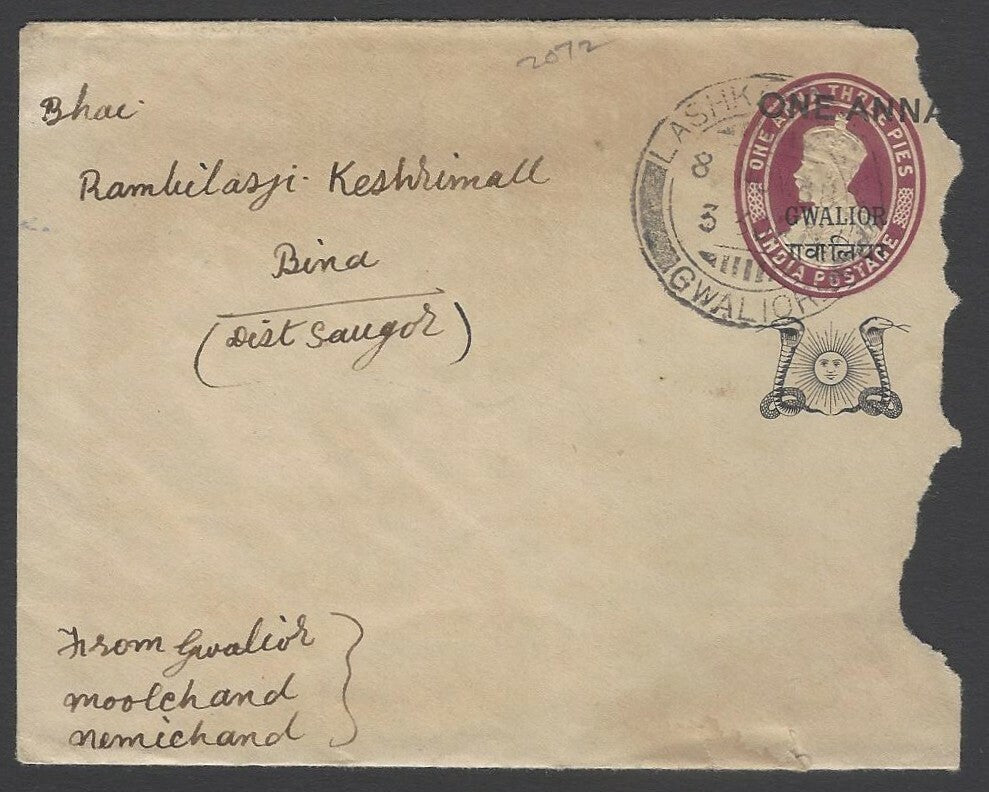 2072
Bhai
Rambilasji Keshrimall
Bina
(Dist Saugor)
LASHKAR
8
3
GWALIOR
ONE ANNA
ONE ANNA THREE PIES
GWALIOR
गवालियर
INDIA POSTAGE
From Gwalior
moolchand
nemichand